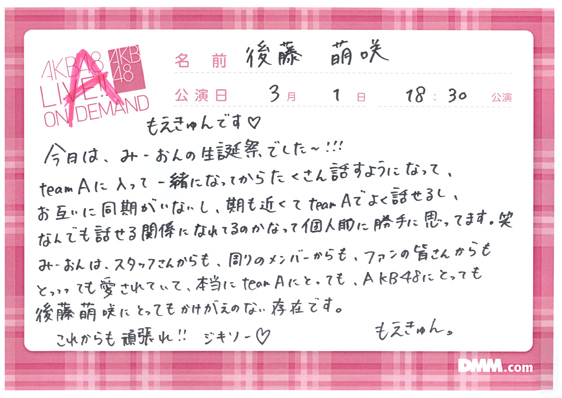 AKB48
LIVE!!
ON DEMAND
AKB
48
A
名前 後藤 萌咲
公演日 3月 1日 18:30 公演
もえきゅんです♡
今日は、みーおんの生誕祭でした〜!!!
teamAに入って一緒になってからたくさん話すようになって、
お互いに同期がいないし、期も近くてteamAでよく話せるし、
なんでも話せる関係になれてるのかなって個人的に勝手に思ってます。笑
みーおんは、スタッフさんからも、周りのメンバーからも、ファンの皆さんからも
とっっっても愛されていて、本当にteamAにとっても、AKB48にとっても
後藤萌咲にとってもかけがえのない存在です。
これからも頑張れ!! ジキソー♡
もえきゅん。
DMM.com